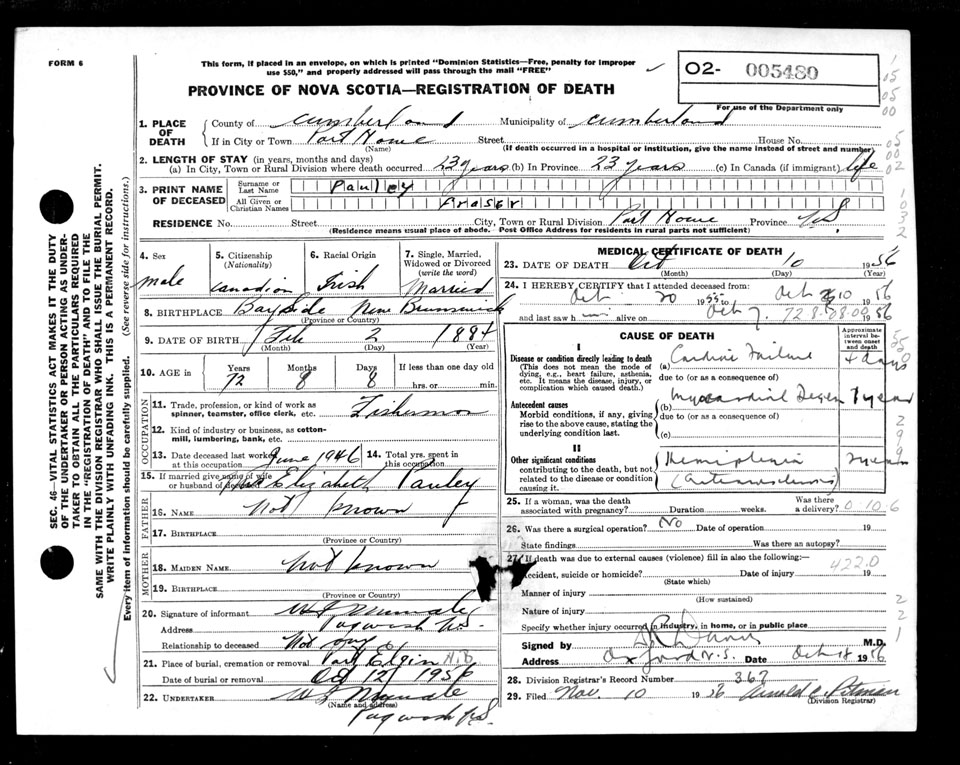 FORM 6
This form, if placed in an envelope, on which is printed "Dominion Statistics—Free, penalty for improper
use $50," and properly addressed will pass through the mail "FREE"
O2- 005480
For use of the Department only
PROVINCE OF NOVA SCOTIA—REGISTRATION OF DEATH
SEC. 46—VITAL STATISTICS ACT MAKES IT THE DUTY
OF THE UNDERTAKER OR PERSON ACTING AS UNDER-
TAKER TO OBTAIN ALL THE PARTICULARS REQUIRED
IN THE "REGISTRATION OF DEATH" AND TO FILE THE
SAME WITH THE DIVISION REGISTRAR WHO SHALL ISSUE THE BURIAL PERMIT.
WRITE PLAINLY WITH UNFADING INK. THIS IS A PERMANENT RECORD.
Every item of information should be carefully supplied. (See reverse side for instructions.)
1. PLACE OF DEATH
County of Cumberland Municipality of Cumberland
If in City or Town Port Howe Street House No.
(Name) (If death occurred in a hospital or institution, give the name instead of street and number)
2. LENGTH OF STAY (in years, months and days)
(a) In City, Town or Rural Division where death occurred 23 years (b) In Province 23 years (c) In Canada (if immigrant) life
3. PRINT NAME OF DECEASED
Surname or Last Name Pauley
All Given or Christian Names Fraser
RESIDENCE No. Street City, Town or Rural Division Port Howe Province N.S.
(Residence means usual place of abode. Post Office Address for residents in rural parts not sufficient)
4. Sex male
5. Citizenship (Nationality) Canadian
6. Racial Origin Irish
7. Single, Married, Widowed or Divorced (write the word) Married
8. BIRTHPLACE Bayside New Brunswick
(Province or Country)
9. DATE OF BIRTH Feb 2 1884
(Month) (Day) (Year)
10. AGE in Years Months Days If less than one day old
72 8 8 hrs. or min.
OCCUPATION
11. Trade, profession, or kind of work as spinner, teamster, office clerk, etc. Fisherman
12. Kind of industry or business, as cotton-mill, lumbering, bank, etc.
13. Date deceased last worked at this occupation June 1946 14. Total yrs. spent in this occupation
15. If married give name of wife or husband of deceased Elizabeth Pauley
FATHER
16. NAME Not known
17. BIRTHPLACE
(Province or Country)
MOTHER
18. MAIDEN NAME Not known
19. BIRTHPLACE
(Province or Country)
20. Signature of informant
Address Pugwash N.S.
Relationship to deceased Not any
21. Place of burial, cremation or removal Port Elgin N.B
Date of burial or removal Oct 12 1956
22. UNDERTAKER
(Name and address)
Pugwash N.S.
MEDICAL CERTIFICATE OF DEATH
23. DATE OF DEATH Oct 10 1956
(Month) (Day) (Year)
24. I HEREBY CERTIFY that I attended deceased from:
Oct 20 1955 to Oct 10 1956
and last saw him alive on Oct 7. 72 8-08-00 1956
CAUSE OF DEATH
Approximate interval between onset and death
I
Disease or condition directly leading to death
(This does not mean the mode of dying, e.g., heart failure, asthenia, etc. It means the disease, injury, or complication which caused death.)
(a) Cardiac Failure 4 days
due to (or as a consequence of)
Antecedent causes
Morbid conditions, if any, giving rise to the above cause, stating the underlying condition last.
(b) Myocardial Degen 1 year
due to (or as a consequence of)
(c)
II
Other significant conditions
contributing to the death, but not related to the disease or condition causing it.
Hemiplegia years
25. If a woman, was the death associated with pregnancy? Duration weeks. Was there a delivery? 0-10-6
26. Was there a surgical operation? No Date of operation 19
State findings Was there an autopsy?
422.0
27. If death was due to external causes (violence) fill in also the following:—
Accident, suicide or homicide? Date of injury 19
(State which)
Manner of injury
(How sustained)
Nature of injury
Specify whether injury occurred in industry, in home, or in public place
Signed by M.D.
Address Oxford N.S. Date Oct 18 1956
28. Division Registrar's Record Number 367
29. Filed Nov. 10 1956 Arnold C. Pitman
(Division Registrar)